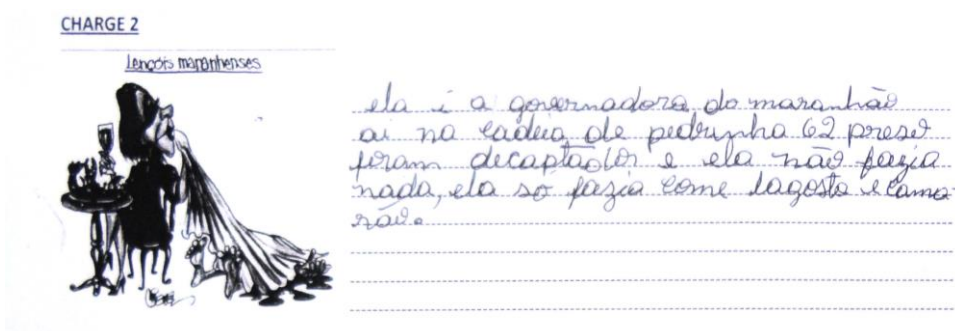 CHARGE 2
Lençóis maranhenses
ela i a governadora do maranhão
ai na cadeia de pedrinha 62 preses
foram decaptados e ela não fazia
nada, ela so fazia come lagosta e cama
rão.